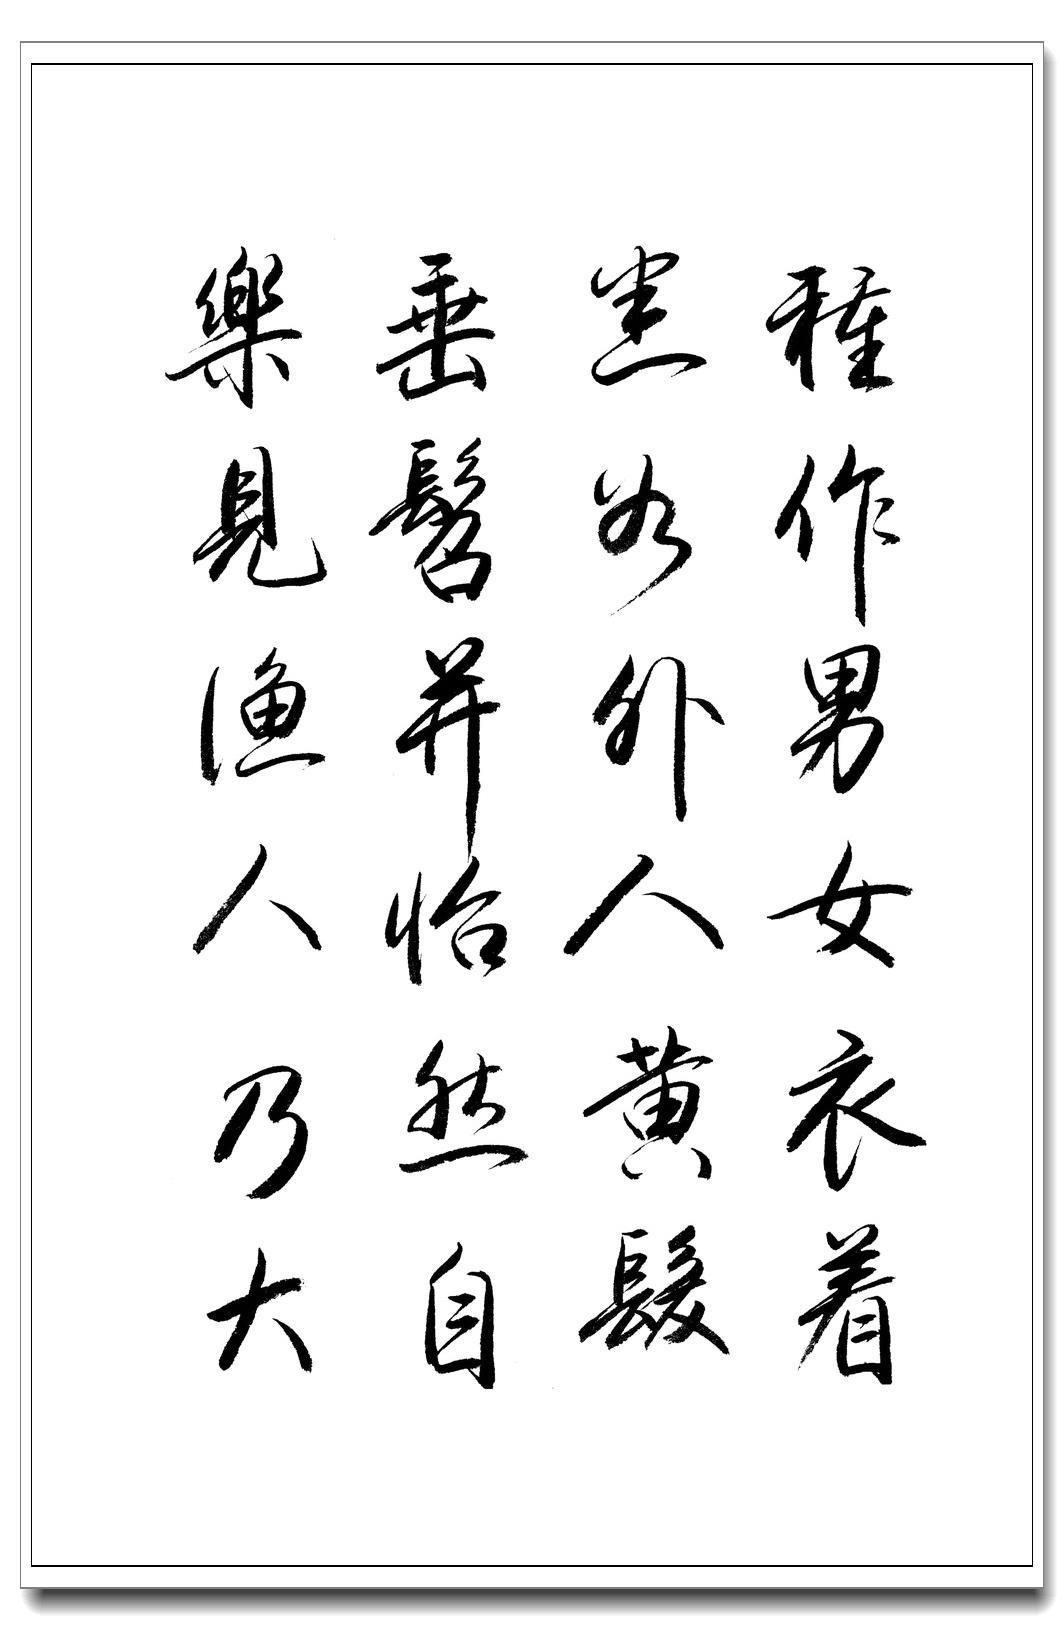 種作男女衣着
悉如外人黃髮
垂髫并怡然自
樂見漁人乃大